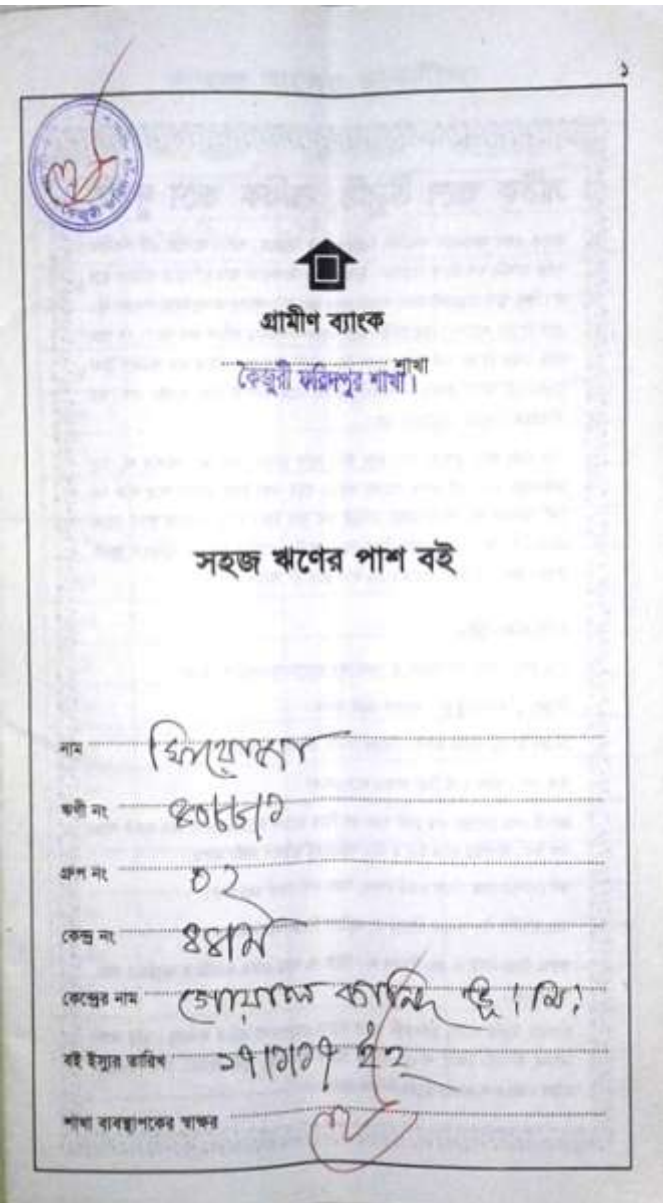 ১
গ্রামীণ ব্যাংক
শাখা
কৈজুরী ফরিদপুর শাখা।
সহজ ঋণের পাশ বই
নাম
ঋণী নং
গ্রুপ নং ০২
কেন্দ্র নং ৪৪/ম
কেন্দ্রের নাম গোয়াল কান্দি
বই ইস্যুর তারিখ ১৭/১/১৭ ইং
শাখা ব্যবস্থাপকের স্বাক্ষর